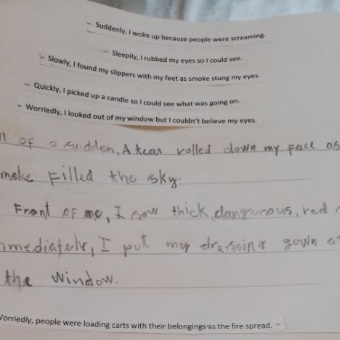 – Suddenly, I woke up because people were screaming.
– Sleepily, I rubbed my eyes so I could see.
– Slowly, I found my slippers with my feet as smoke stung my eyes.
– Quickly, I picked up a candle so I could see what was going on.
– Worriedly, I looked out of my window but I couldn't believe my eyes.
of a sudden, A tear rolled down my face as
moke filled the sky.
Front of me, I saw thick, dangourous, red
mmediately, I put my dressing gown
the window.
Worriedly, people were loading carts with their belongings as the fire spread. –